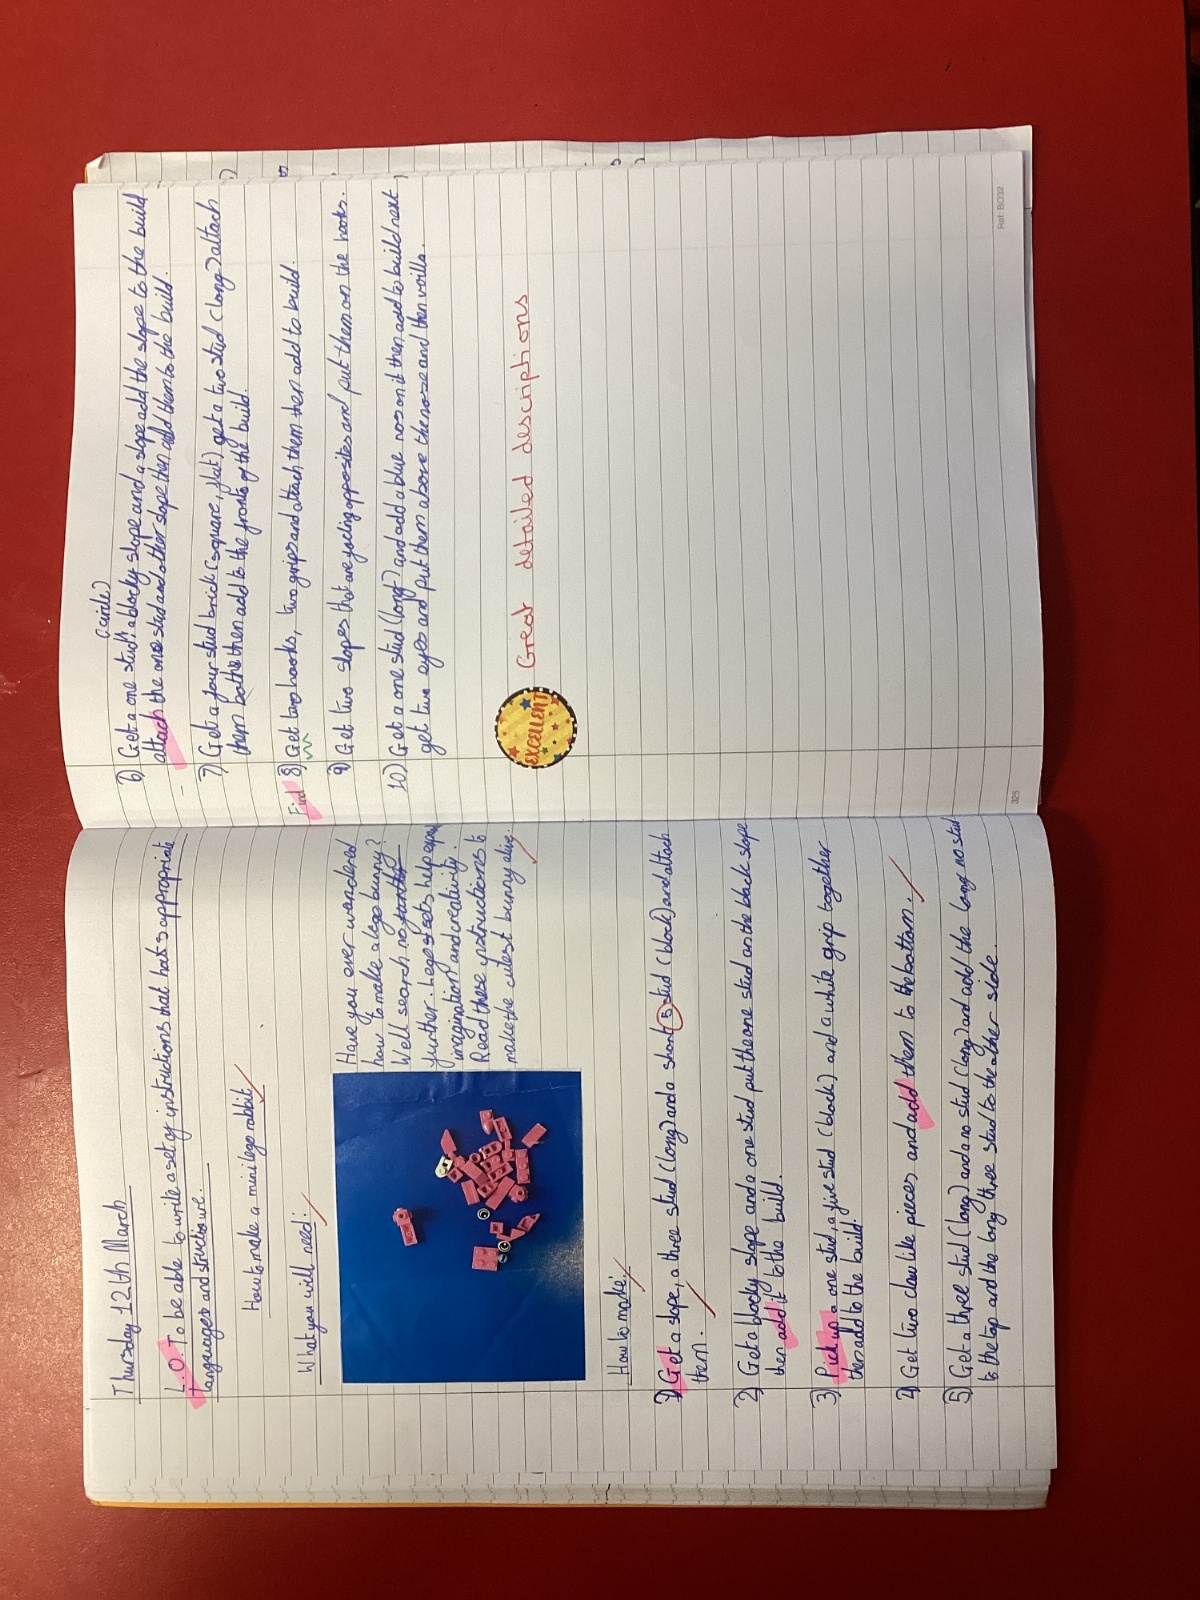 Thursday 12th March
L.O. To be able to write a set of instructions that has appropriate
languages and structure.
How to make a mini lego rabbit
What you will need:
Have you ever wandered
how to make a lego bunny?
Well search no
further. Lego sets help
imagination and creativity.
Read these instructions to
make the cutest bunny alive.
How to make:
1) Get a slope, a three stud (long) and a short 5 stud (block) and attach
them.
2) Get a blocky slope and a one stud put the one stud on the black slope
then add it to the build.
3) Pick up a one stud, a five stud (block) and a white grip together
then add to the build.
4) Get two claw like pieces and add them to the bottom.
5) Get a three stud (long) and a no stud (long) and add the long no stud
to the top and the long three stud to the other side.
(circle)
6) Get a one stud, a blocky slope and a slope add the slope to the build
attach the one stud and other slope then add them to the build.
7) Get a four stud brick (square, flat) get a two stud (long) attach
them both then add to the front of the build.
Find 8) Get two hooks, two grips and attach them then add to build.
9) Get two slopes that are facing opposites and put them on the hooks.
10) Get a one stud (long) and add a blue nos on it then add to build next,
get two eyes and put them above the nose and then voilla.
EXCELLENT
Great detailed descriptions
325
Ref: BC32